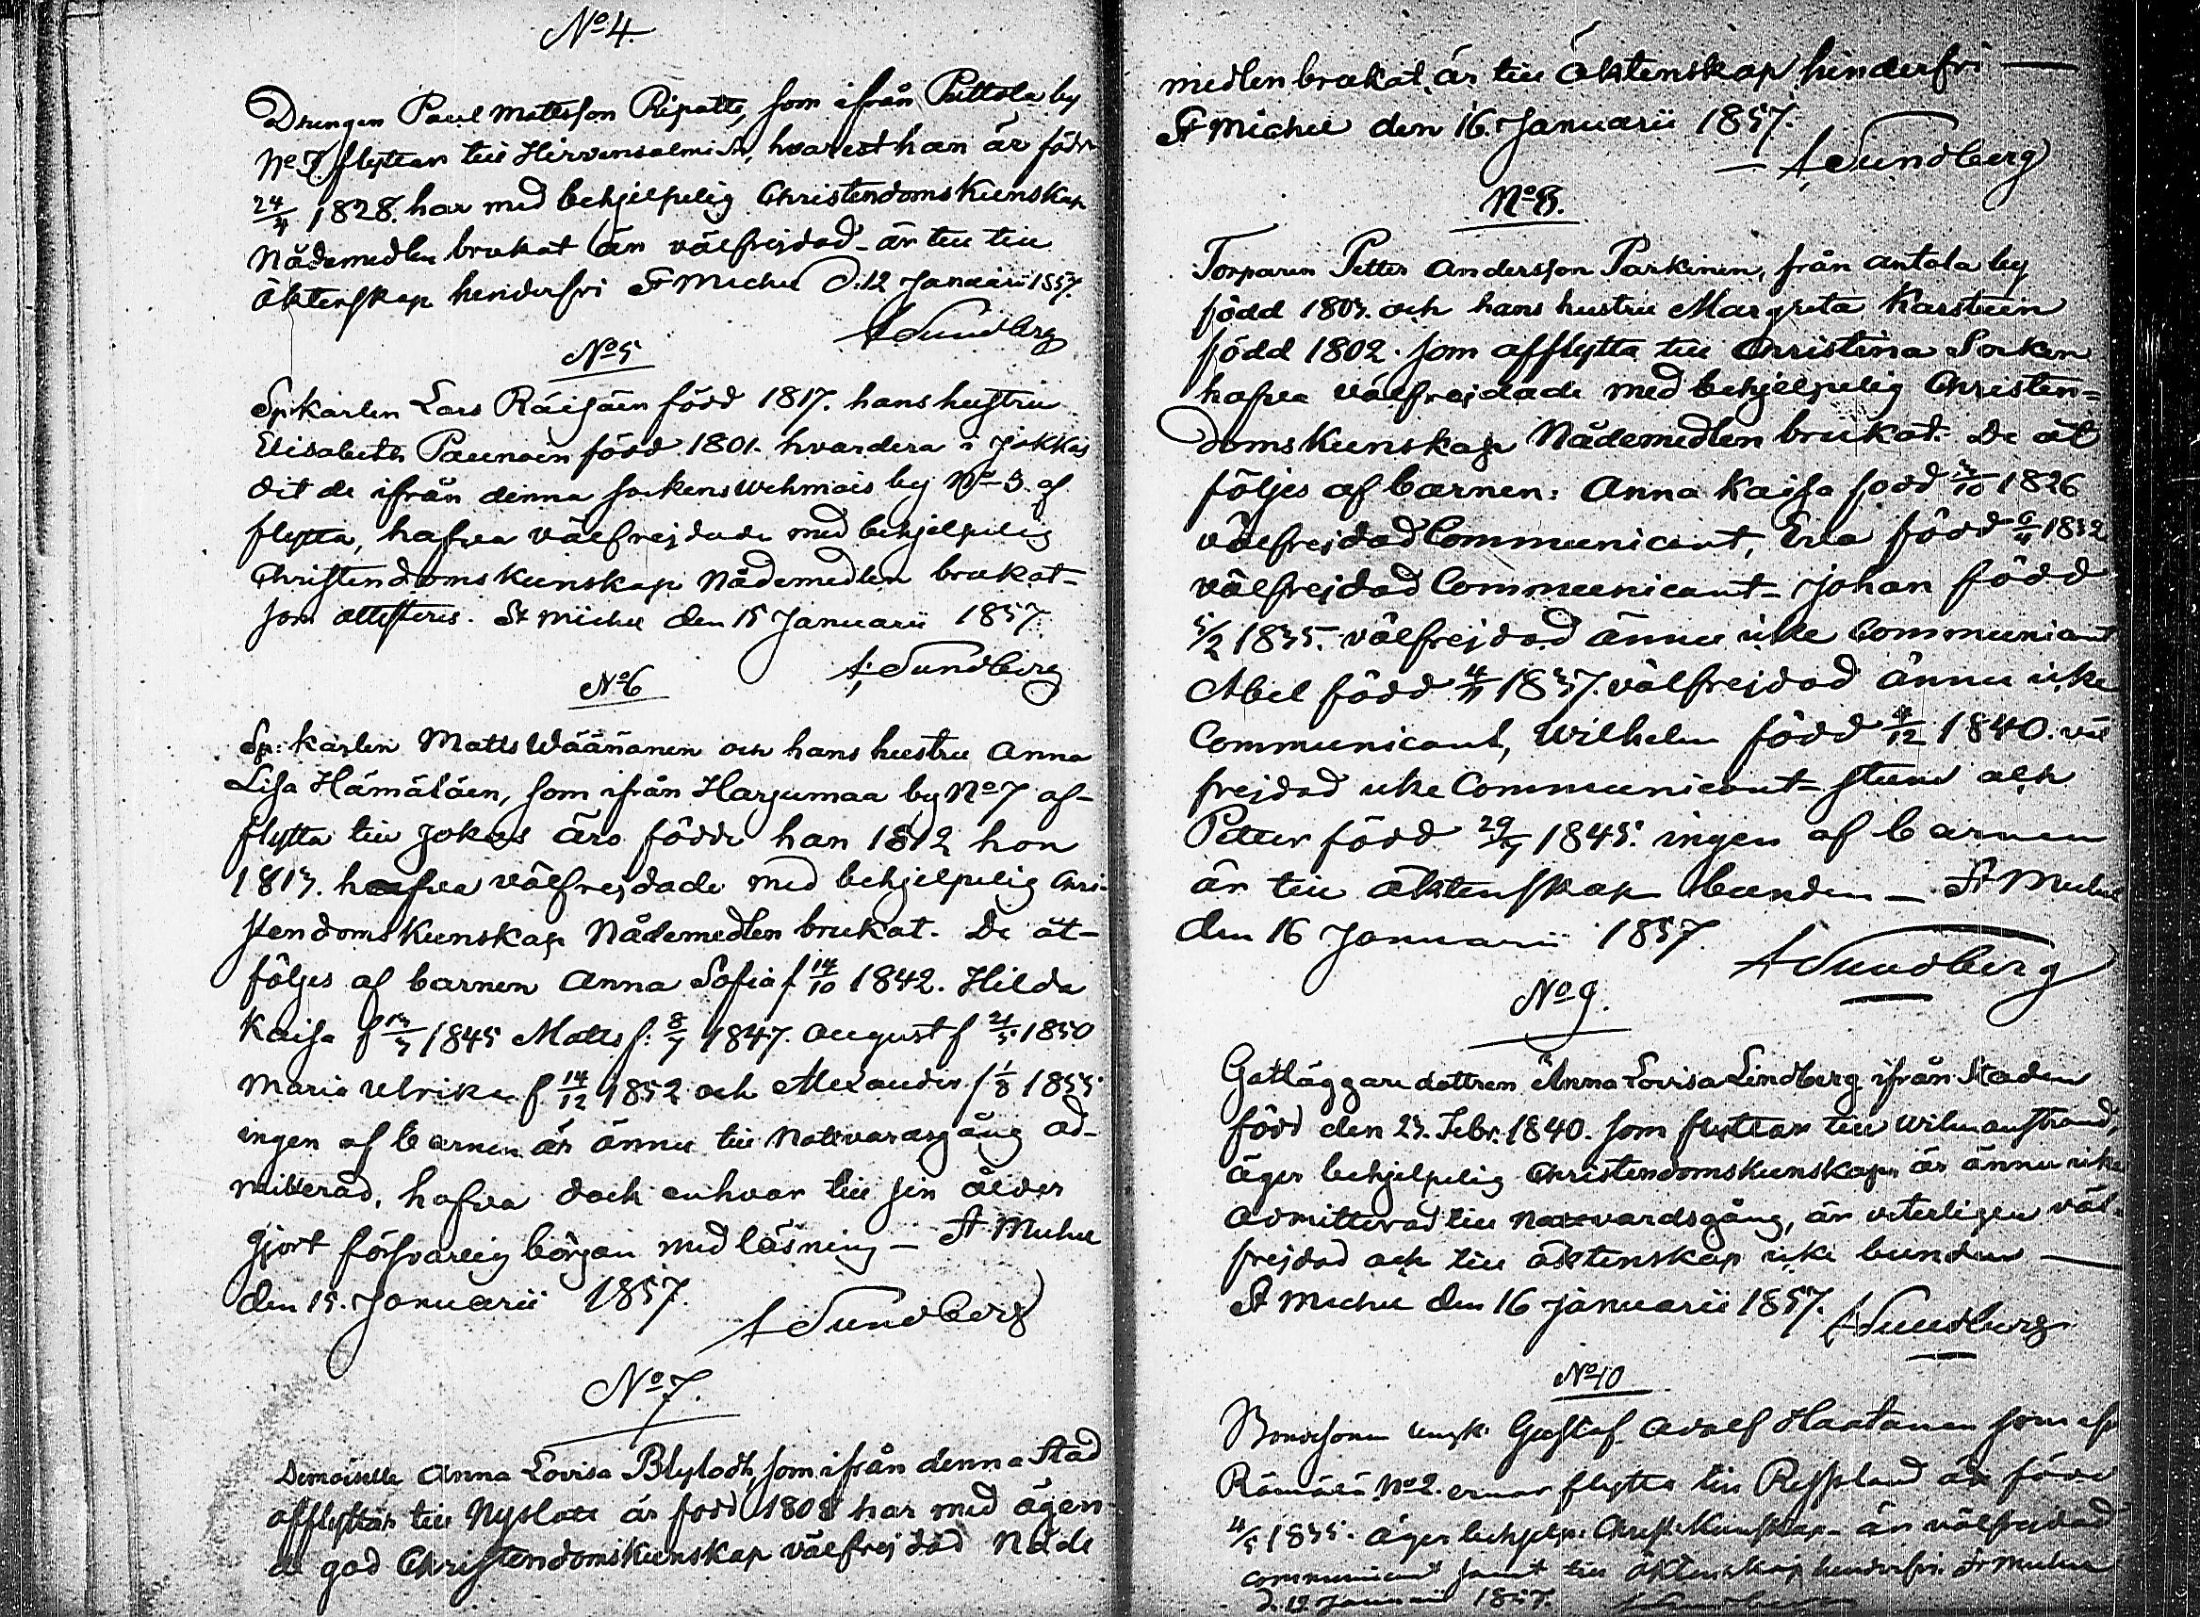 No 4.
Drengen Paul Mattsson Ripatti, som ifrån Pettola by
No 7. flyttar till Hirvensalmi, hvarest han är född
24/4 1828. har med behjelpelig Christendoms Kunskap
Nådemedlen brukat är välfrejdad - är till
äktenskap henderfri St Michel d. 12 Januarii 1857.
A Sundberg
No 5
Sp: karlen Lars Räisäin född 1817. hans hustru
Elisabeth Paunoin född 1801. hvardera i Jokkas
dit de ifrån denna sockens Wehmais by No 3. af
flytta, hafva välfrejdade med behjelpelig
Christendoms Kunskap Nådemedlen brukat -
som attesteres. St Michel den 15 Januarii 1857.
A; Sundberg
No 6
Sp: karlen Matts Wäänänen och hans hustru Anna
Lisa Hämäläin, som ifrån Harjumaa by No 7 af-
flytta till Jokkas äro födde han 1812 hon
1813. hafva välfrejdade med behjelpelig Chri-
stendoms Kunskap Nådemedlen brukat. De åt-
följes af barnen Anna Sofia f 14/10 1842. Hilda
Kaisa f 13/3 1845 Matts f: 8/7 1847. August f 21/5 1850
Maria Ulrika f 14/12 1852 och Alexander f 1/8 1855
ingen af barnen är ännu till Nattvardsgång ad-
mitterad, hafva dock enhvar till sin ålder
gjort försvarlig början med läsning - St Michel
den 15. Januarii 1857.
A Sundberg
No 7.
Demoiselle Anna Lovisa Blylodh, som ifrån denna Stad
afflyttar till Nyslott är född 1808 har med ägen-
de god Christendomskunskap välfrejdad Nåde
medlen brukat, är till Äktenskap henderfri —
St Michel den 16. Januarii 1857.
- A; Sundberg
No 8.
Torparen Petter Andersson Parkinen, från Antola by
född 1803. och hans hustru Margreta Karstuin
född 1802. som afflytta till Christina Socken
hafva välfrejdade med behjelpelig Christen=
doms Kunskap Nådemedlen brukat. De åt
följes af barnen: Anna Kaisa född 3/10 1826
välfrejdad Communicant, Eva född 6/4 1832
välfrejdad Communicant - Johan född
5/2 1835. välfrejdad ännu icke Communicant
Abel född 4/11 1837. välfrejdad ännu icke
Communicant, Wilhelm född 4/12 1840. väl
frejdad icke Communicant - och
Petter född 29/7 1845. ingen af barnen
är till äktenskap bunden - St Michel
den 16 Januarii 1857.
A Sundberg
No 9.
Gatläggare dottren Anna Lovisa Lindberg ifrån Staden
född den 23. Febr. 1840. som flyttar till Wilmanstrand,
äger behjelpelig Christendomskunskap är ännu icke
admitterad till Nattvardsgång, är veterligen väl-
frejdad och till äktenskap icke bunden —
St Michel den 16 Januarii 1857.
A Sundberg
No 10
Bondesonen Gustaf Adolf Haatanen som
Rämälä No 2. ernar flytta till Ryssland är född
4/5 1835. äger behjelp. Christ. Kunskap - är välfrejdad
communicant samt till äktenskap henderfri. St Michel
d. 19 Januarii 1857.